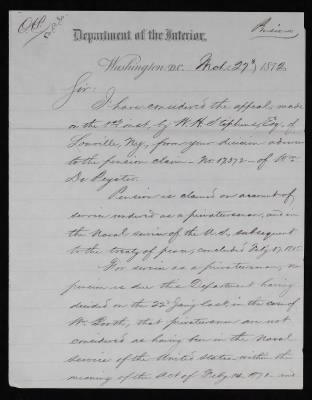 Department of the Interior,
Washington D.C. Mch 27th 1872.
Sir:
I have considered the appeal, made
on the inst, by W. H. Stephens, Esq, of
Lowville, N.Y., from your decision adverse
to the pension claim - No. 17,872 - of Wm
De Peyster.
Pension is claimed on account of
service rendered as a privateersman, and in
the Naval service of the U.S., subsequent
to the treaty of peace, concluded Feby 17, 1815.
For service as a privateersman, no
pension is due this Department having
decided on the 22d Jany last, in the case of
Wm Booth, that privateersmen are not
considered as having been in the Naval
service of the United States within the
meaning of the Act of Feby 14, 1871 - and